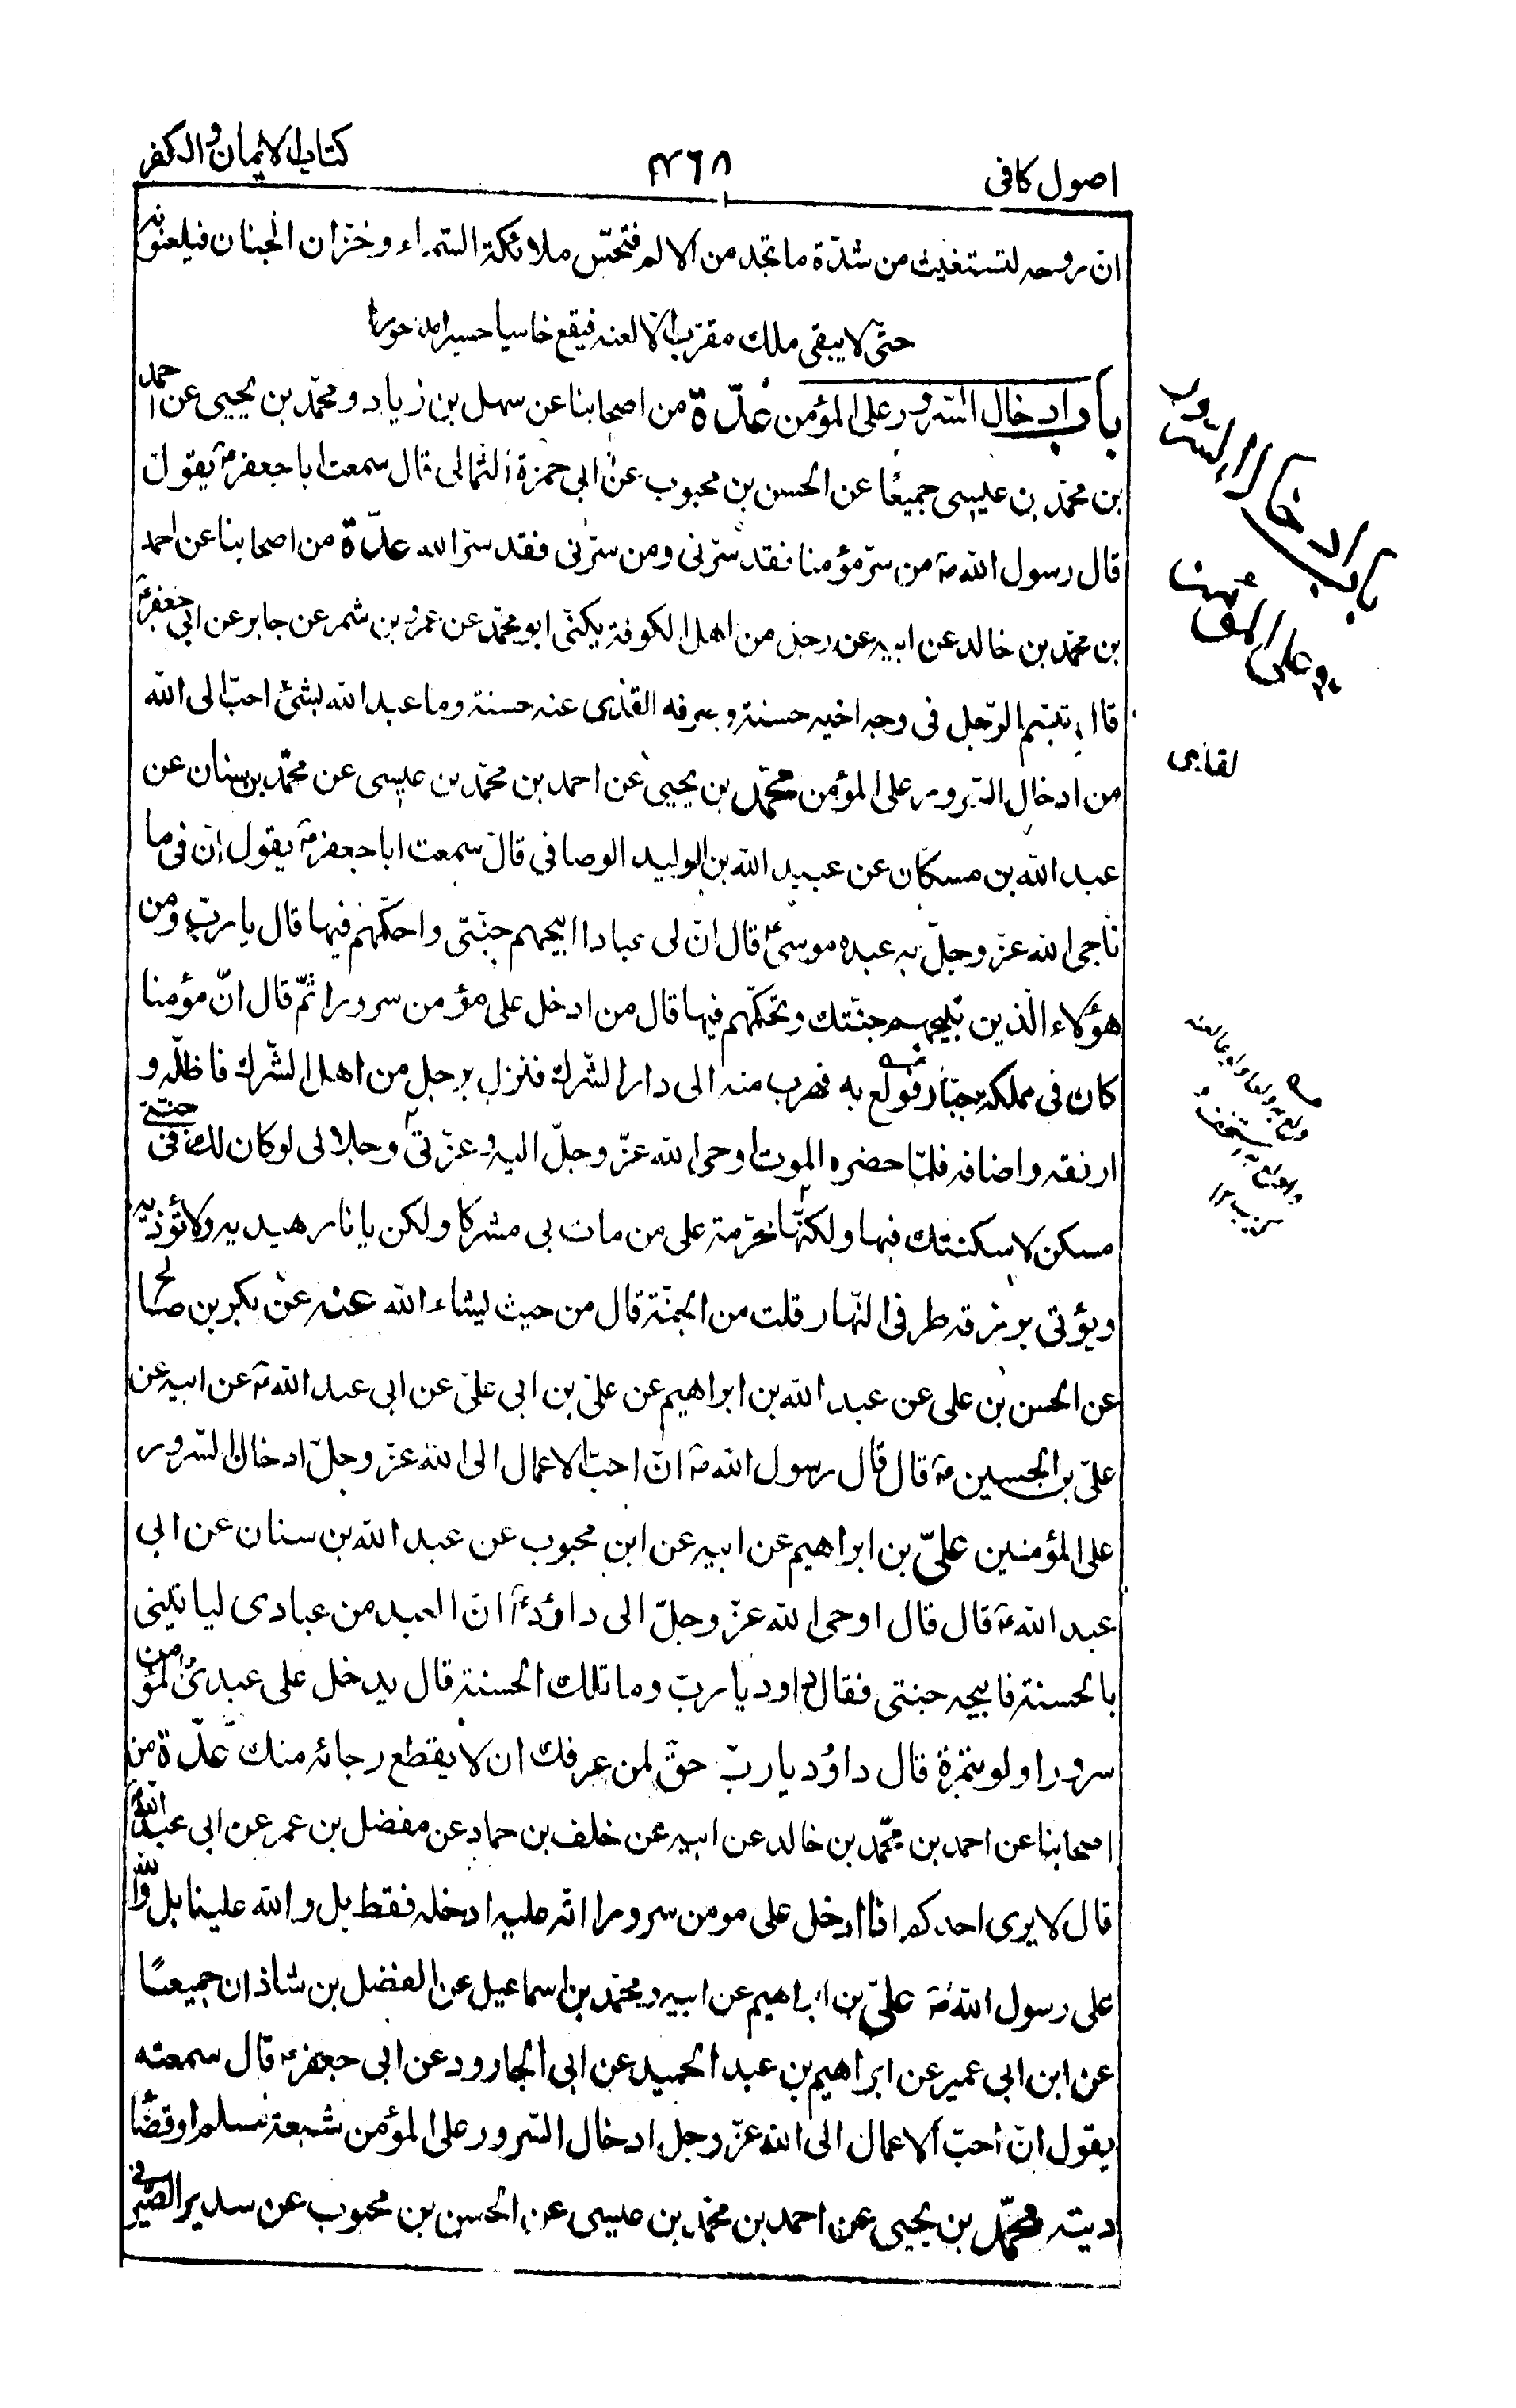 اصول كافى
٤٦٨
كتاب الايمان والكفر
ان روحه لتستغيث من شدّة ما تجد من الالم فتحسّ ملائكة السّماء و خزّان الجنان فيلعنونه
حتّى لا يبقى ملك مقرّب الا لعنه فيقع خاسيا حسيرا مدحورا
باب ادخال السّرور على المؤمن عدّة من اصحابنا عن سهل بن زياد و محمّد بن يحيى عن احمد
بن محمّد بن عيسى جميعًا عن الحسن بن محبوب عن ابى حمزة الثمالى قال سمعت ابا جعفرؑ يقول
قال رسول اللهؐ من سرّ مؤمنا فقد سرّنى ومن سرّنى فقد سرّ الله عدّة من اصحابنا عن احمد
بن محمّد بن خالد عن ابيه عن رجل من اهل الكوفة يكنّى ابو محمّد عن عمرو بن شمر عن جابر عن ابى جعفرؑ
قال تبسّم الرّجل فى وجه اخيه حسنة و صرفه القذى عنه حسنة وما عبد الله بشئ احبّ الى الله
من ادخال السّرور على المؤمن محمّد بن يحيى عن احمد بن محمّد بن عيسى عن محمّد بن سنان عن
عبد الله بن مسكان عن عبيد الله بن الوليد الوصافى قال سمعت ابا جعفرؑ يقول ان فى ما
ناجى الله عزّ وجلّ به عبده موسىؑ قال انّ لى عبادا ابيحهم جنّتى واحكّمهم فيها قال يا ربّ ومن
هؤلاء الّذين تبيحهم جنّتك وتحكّمهم فيها قال من ادخل على مؤمن سرورا ثمّ قال انّ مؤمنا
كان فى مملكة جبّار فولع به فهرب منه الى دار الشّرك فنزل برجل من اهل الشّرك فاظلّه و
ارفقه واضافه فلمّا حضره الموت اوحى الله عزّ وجلّ اليه وعزّتى وجلالى لو كان لك فى جنّتى
مسكن لاسكنتك فيها ولكنّها محرّمة على من مات بى مشركا ولكن يا نار هيديه ولا تؤذيه
ويؤتى برزقه طرفى النّهار قلت من الجنّة قال من حيث يشاء الله عنه عن بكر بن صالح
عن الحسن بن على عن عبد الله بن ابراهيم عن علىّ بن ابى علىّ عن ابى عبد اللهؑ عن ابيه عن
علىّ بن الحسينؑ قال قال رسول اللهؐ انّ احبّ الاعمال الى الله عزّ وجلّ ادخال السّرور
على المؤمنين علىّ بن ابراهيم عن ابيه عن ابن محبوب عن عبد الله بن سنان عن ابى
عبد اللهؑ قال قال اوحى الله عزّ وجلّ الى داؤدؑ انّ العبد من عبادى لياتينى
بالحسنة فابيحه جنتى فقال داود يا ربّ وما تلك الحسنة قال يدخل على عبدى المؤمن
سرورا ولو بتمرة قال داؤد يا ربّ حقّ لمن عرفك ان لا يقطع رجائه منك عدّة من
اصحابنا عن احمد بن محمّد بن خالد عن ابيه عن خلف بن حماد عن مفضل بن عمر عن ابى عبد اللهؑ
قال لا يرى احدكم اذا ادخل على مومن سرورا انّه عليه ادخله فقط بل والله علينا بل والله
على رسول اللهؐ علىّ بن ابراهيم عن ابيه و محمّد بن اسماعيل عن الفضل بن شاذان جميعًا
عن ابن ابى عمير عن ابراهيم بن عبد الحميد عن ابى الجارود عن ابى جعفرؑ قال سمعته
يقول انّ احبّ الاعمال الى الله عزّ وجل ادخال السّرور على المؤمن شبعة مسلم او قضاء
دينه محمّد بن يحيى عن احمد بن محمّد بن عيسى عن الحسن بن محبوب عن سدير الصّيرفى
باب ادخال السرور
على المؤمن
لقذى